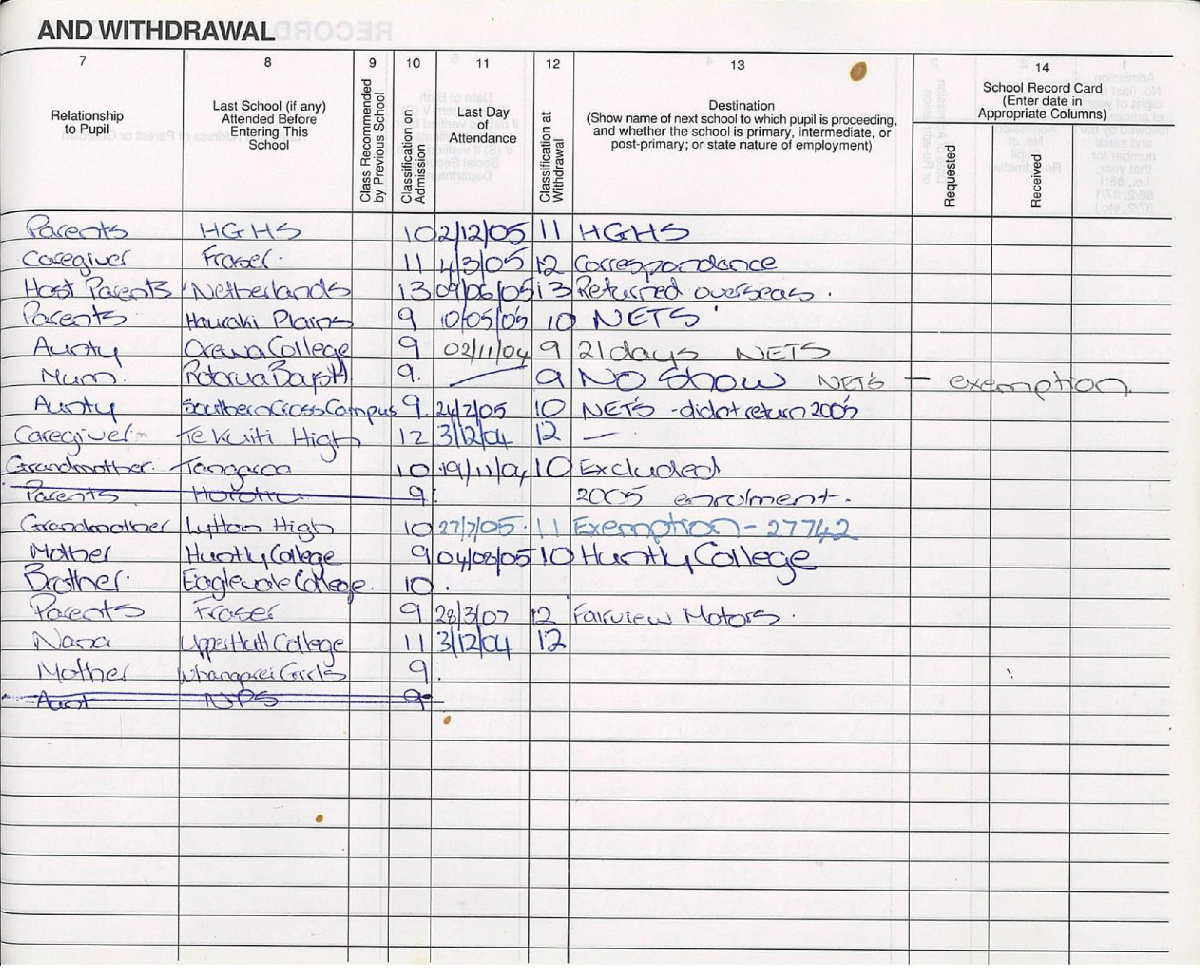 AND WITHDRAWAL
7 8 9 10 11 12 13 14
Relationship to Pupil
Last School (if any) Attended Before Entering This School
Class Recommended by Previous School
Classification on Admission
Last Day of Attendance
Classification at Withdrawal
Destination
(Show name of next school to which pupil is proceeding, and whether the school is primary, intermediate, or post-primary; or state nature of employment)
School Record Card
(Enter date in Appropriate Columns)
Requested
Received
Parents HGHS 10 2/12/05 11 HGHS
Caregiver Fraser. 11 4/3/05 12 Correspondance
Host Parents Netherlands 13 09/06/05 13 Returned overseas.
Parents Hauraki Plains 9 10/05/05 10 NETS
Aunty Orewa College 9 02/11/04 9 21 days NETS
Mum. Rotorua 9. — 9 No Show NETS — exemption.
Aunty Southern Cross Campus 9. 24/2/05 10 NETS - didnt return 2005
Caregiver Te Kuiti High 12 3/12/04 12 —
Grandmother. Tangaroa 10 19/11/04 10 Excluded
Parents 9. 2005 enrolment.
Grandmother Lytton High 10 27/7/05. 11 Exemption - 27742
Mother Huntly College 9 04/08/05 10 Huntly College
Brother. Eaglevale College. 10.
Parents Fraser 9 28/3/07 12 Fairview Motors.
Nana Upper Hutt College 11 3/12/04 12
Mother Whangarei Girls 9.
Aunt NPS 9